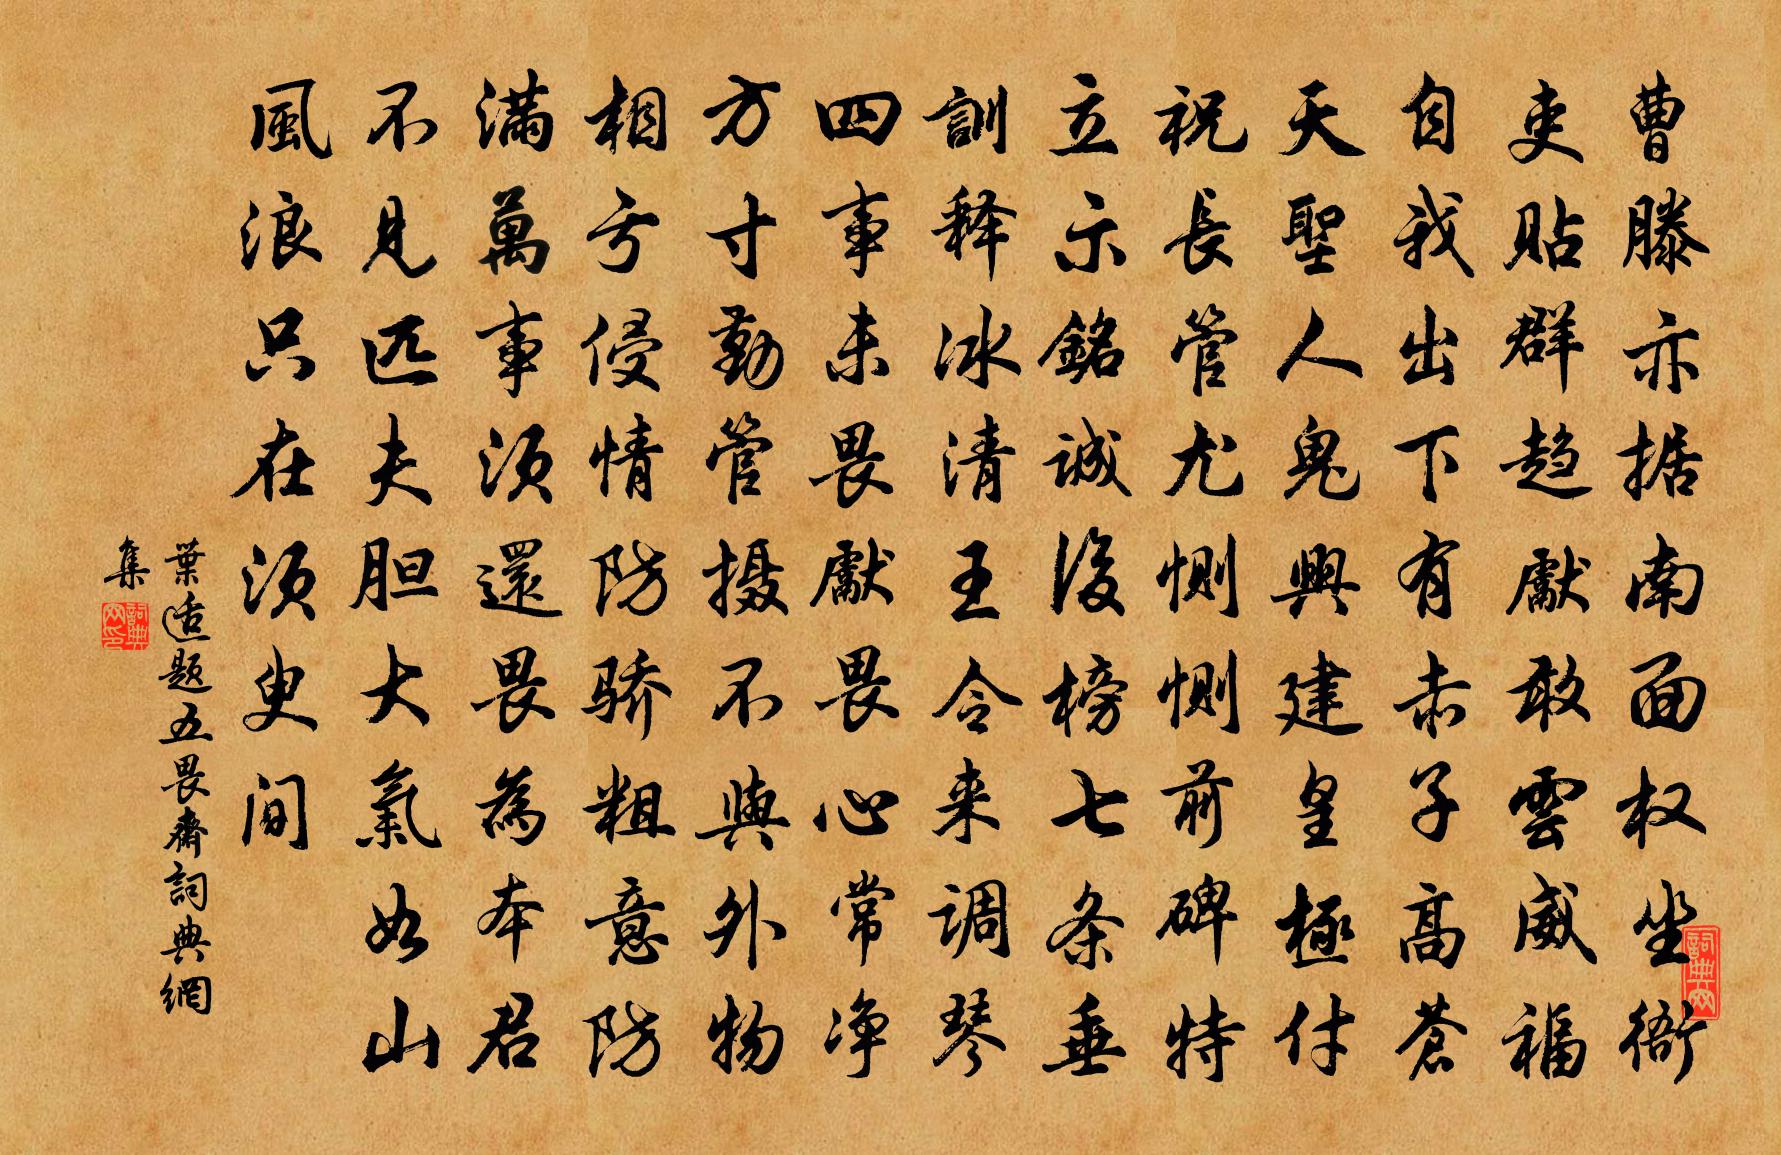 曹滕亦据南面权坐衙
吏贴群趋獻敢雲威福
自我出下有赤子高蒼
天聖人鬼興建皇極付
祝長管尤惻惻前碑特
立示銘誠後榜七条垂
訓释冰清玉令来调琴
四事未畏獻畏心常净
方寸勤管摄不與外物
相亏侵情防骄粗意防
滿萬事须還畏為本君
不見匹夫胆大氣如山
風浪只在须臾间
葉适题五畏齋詞典網
集
詞典网
詞典网印